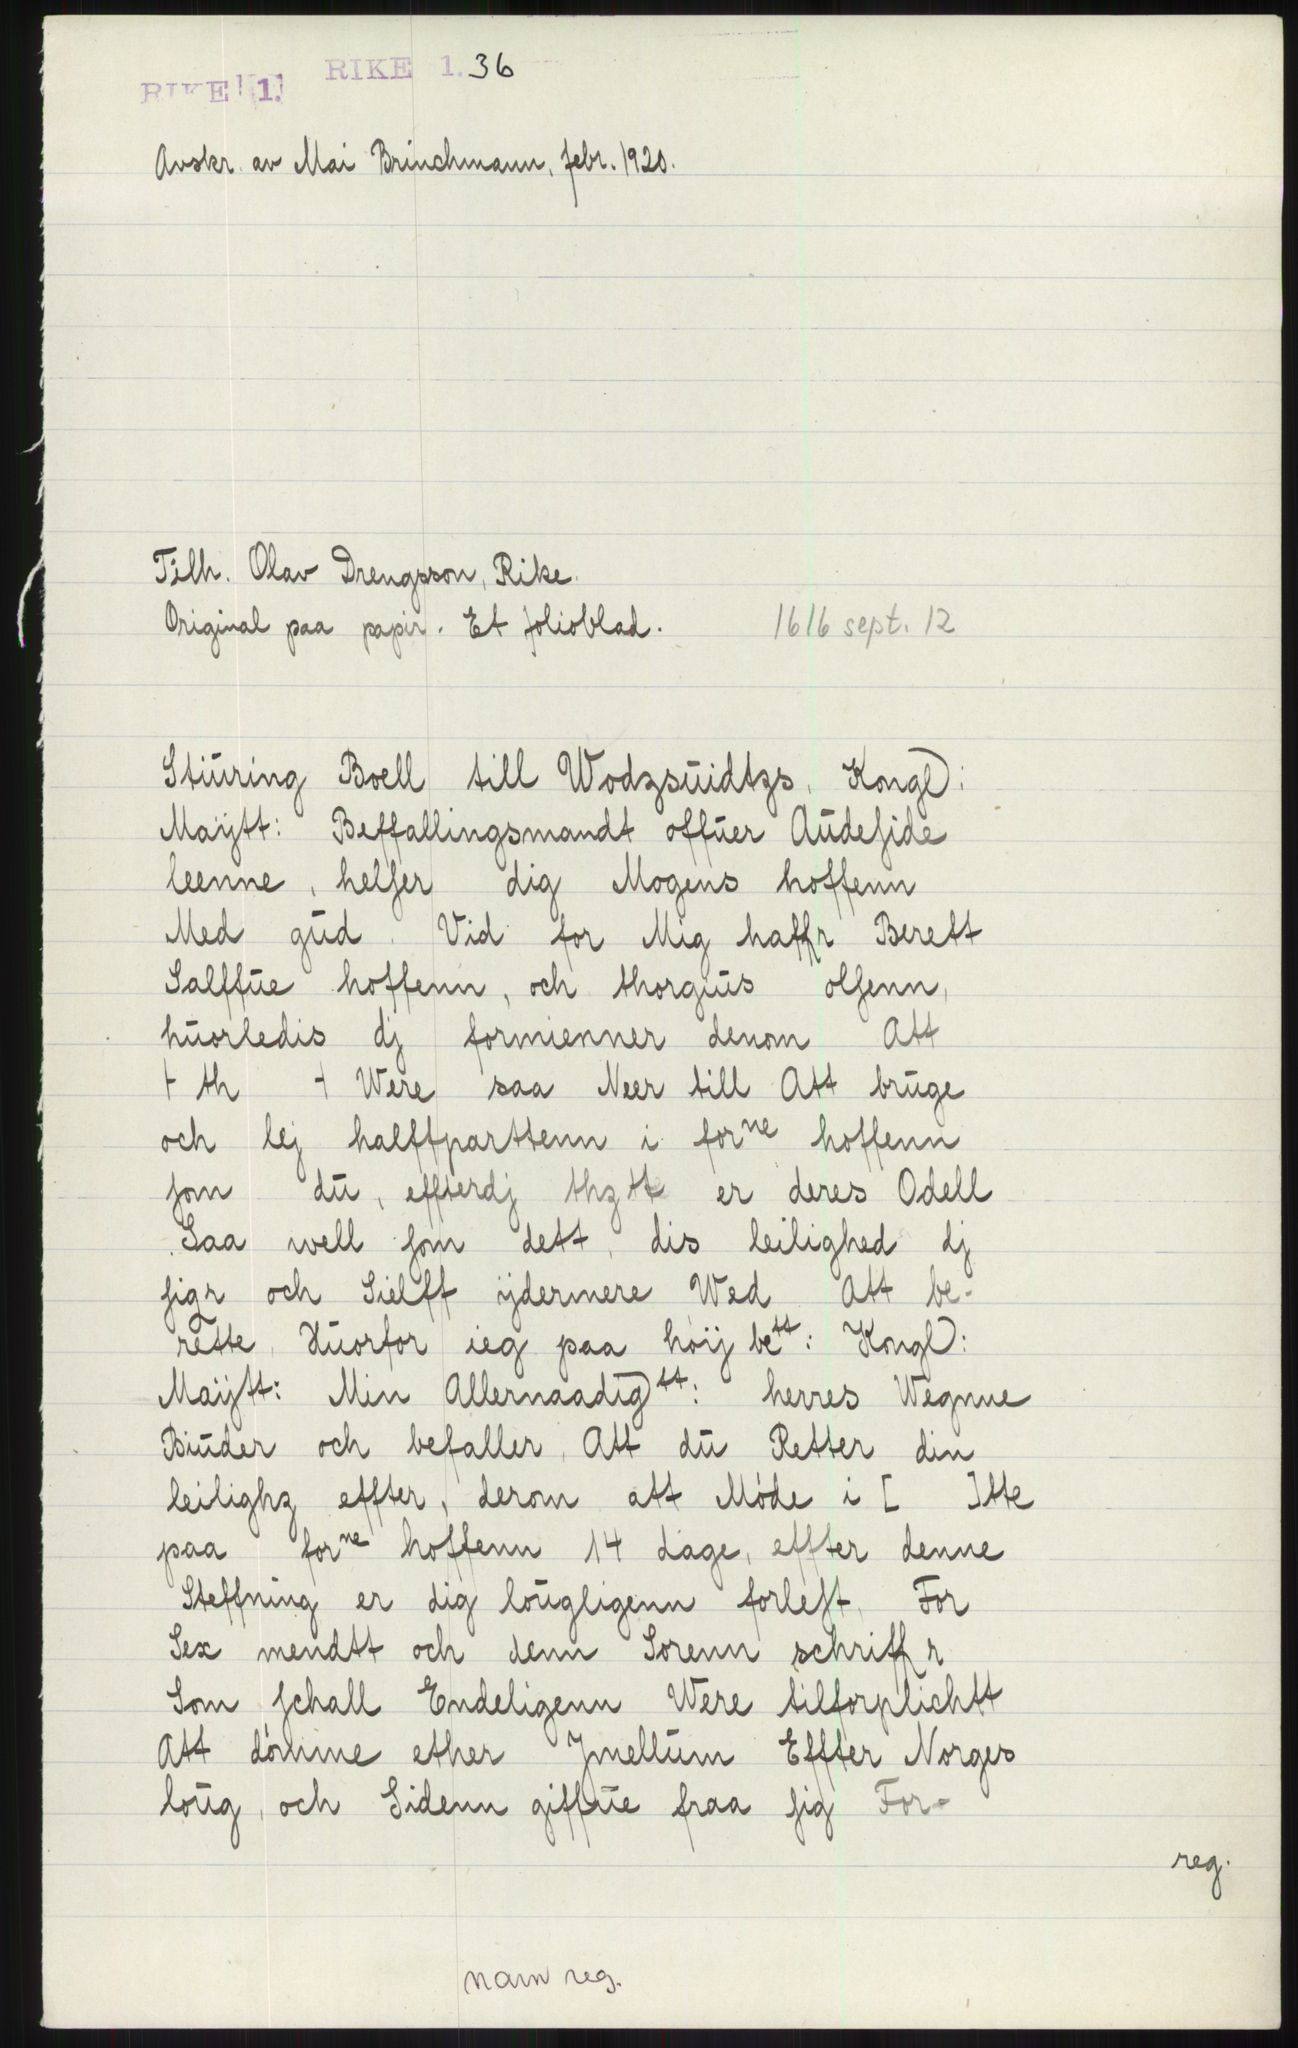 RIKE 1. 36
RIKE 1.
Avskr. av Mai Brinchmann, febr. 1920.
Tilh. Olav Drengsson, Rike.
Original paa papir. Et folioblad. 1616 sept. 12
Stiũring Boell till Wodzsũidtzs, Kongl:
Maÿtt: Beffallingsmandt offũer Aũdeſide
leenne, helſer dig Mogens hoffenn
Med gũd. Vid for Mig haffr Berett
Salffũe hoffenn, och thorgiũs olſenn,
hũorledis dj formienner denom Att
+ th + Were saa Neer till Att brũge
och lej halffparttenn i forne hoffenn
ſom dũ, effterdj thz tt er deres Odell
Saa well ſom dett, dis leilighed dj
ſigr och Sielff ÿdermere Wed Att be-
rette, Hũorfor ieg paa høÿ bett: Kongl:
Maÿtt: Min Allernaadigtt: herres Wegnne
Biũder och befaller, Att dũ Retter din
leilighz effter, derom att Møde i [ ]tte
paa forne hoffenn 14 dage, effter denne
Steffning er dig loũgligenn forleſt, For
Sex mendtt och denn Sorenn schriffr
Som ſchall Endeligenn Were tilforplichtt
Att dømme ether Jmellũm Effter Norges
loũg, och Sidenn giffũe fraa ſig For-
reg.
navn reg.